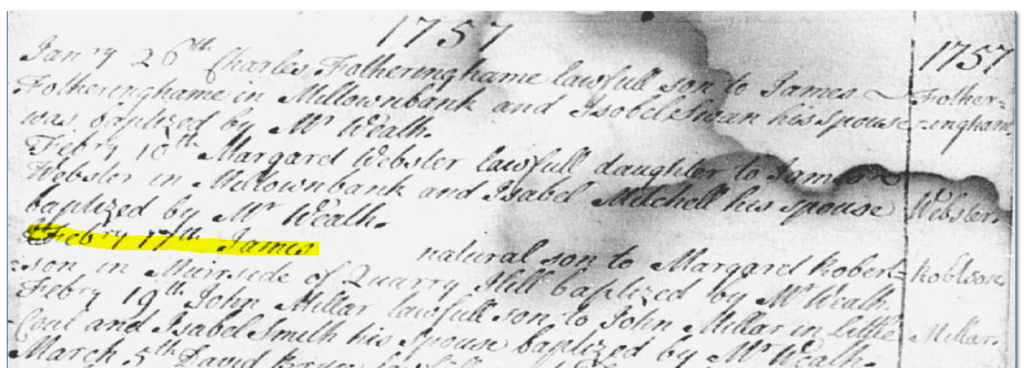 1757
1757
Janry 26th Charles Fotheringhame lawfull son to James ~ Fother=
Fotheringhame in Millownbank and Isobel Swan his Spouse ringhame
was baptized by Mr Weath.
Febry 10th Margaret Webster lawfull daughter to James
Webster in Millownbank and Isabel Mitchell his spouse Webster.
baptized by Mr Weath.
Febry 17th James natural son to Margaret Robert= Robtson
=son in Muirside of Quarry Hill baptized by Mr Weath.
Febry 19th John Millar lawfull son to John Millar in Little Millar.
and Isabel Smith his Spouse baptized by Mr Weath.
March 5th David